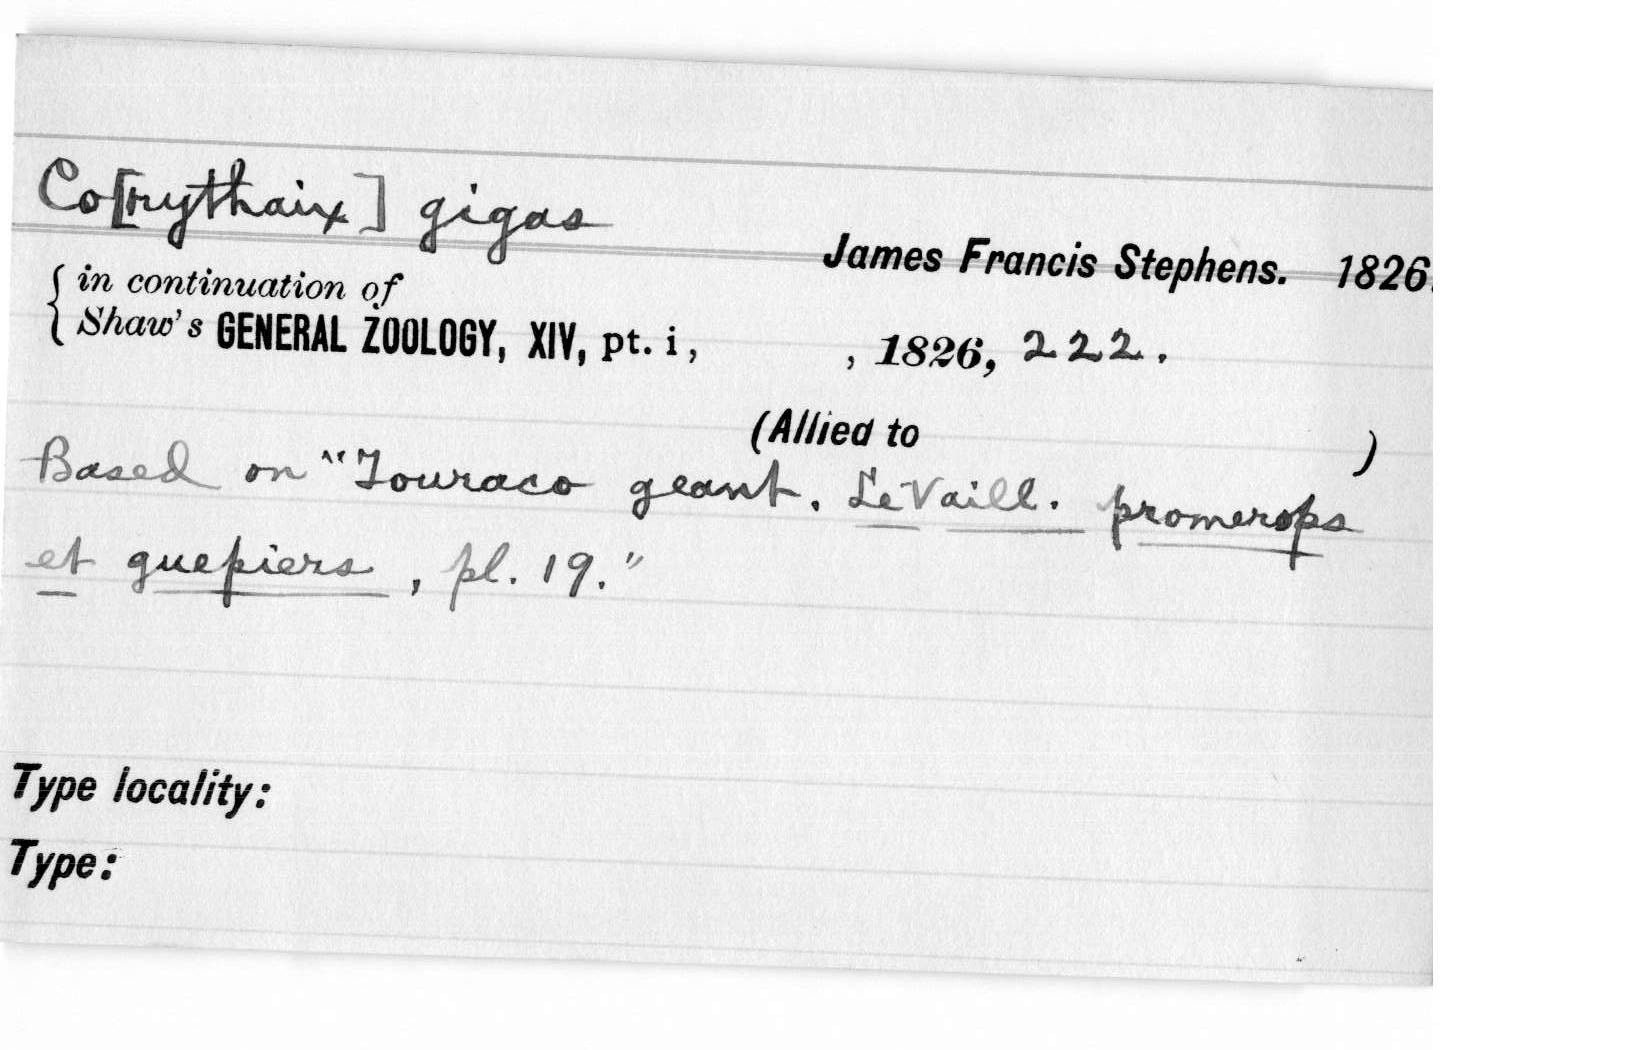 Co[rythaix] gigas
James Francis Stephens. 1826.
in continuation of
Shaw's GENERAL ZOOLOGY, XIV, pt. i, , 1826, 222.
(Allied to )
Based on "Touraco geant. Le Vaill. promerops
et guepiers, pl. 19."
Type locality:
Type: